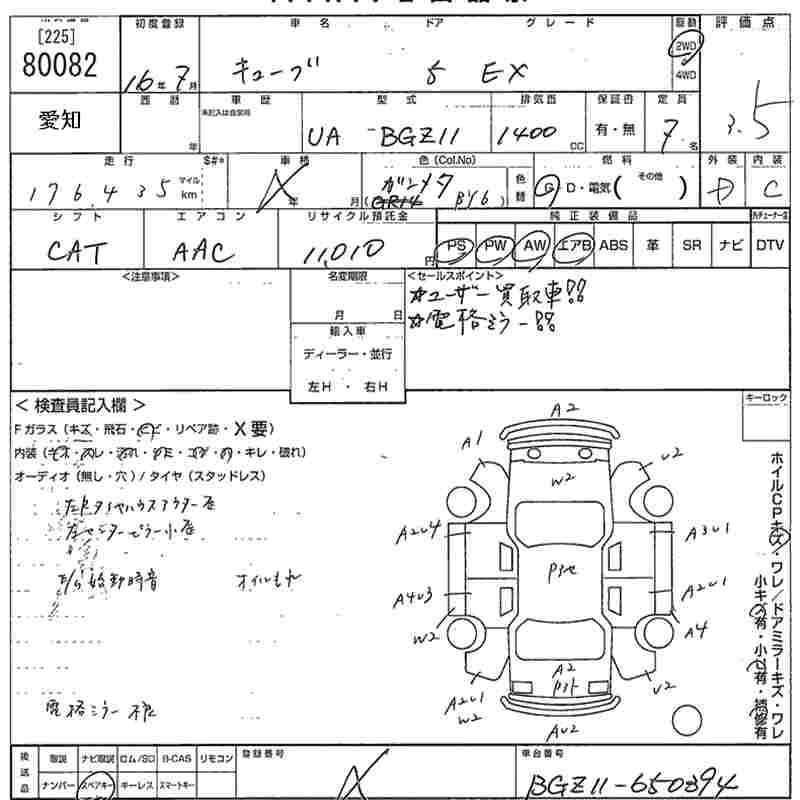 [225]
80082
愛知
初度登録
16年7月
車名
キューブ
ドア
5
グレード
EX
駆動
2WD
4WD
評価点
3.5
西暦
年
車歴
未記入は自家用
型式
UA BGZ11
排気量
1400 cc
車検証
有・無
定員
7名
走行
176,435
マイル
km
$#*
車検
年 月
色(Col.No)
ガンメタ
BY6
色替
燃料
G・D・電気( その他 )
外装
D
内装
C
シフト
CAT
エアコン
AAC
リサイクル預託金
11,010円
純正装備品
PS PW AW エアB ABS 革 SR ナビ DTV
<注意事項>
名変期限
月 日
輸入車
ディーラー・並行
左H ・ 右H
<セールスポイント>
☆ユーザー買取車!!
☆電格ミラー!!
< 検査員記入欄 >
Fガラス(キズ・飛石・ヒビ・リペア跡・X要)
オーディオ(無し・穴)/タイヤ(スタッドレス)
左センターピラー小凹
E/G始動時音
電格ミラー
キーロック
ホイルCPキズ・ワレ/ドアミラーキズ・ワレ
小キズ有・小凹有・補修有
A2
A1
U2
W2
A2U4
A3U1
A4U3
A2U1
W2
A4
A2
A2U1
W2
U2
AU2
後送品
取説 ナビ取説 ロム/SD B-CAS リモコン
ナンバー スペアキー キーレス スマートキー
登録番号
車台番号
BGZ11-650394